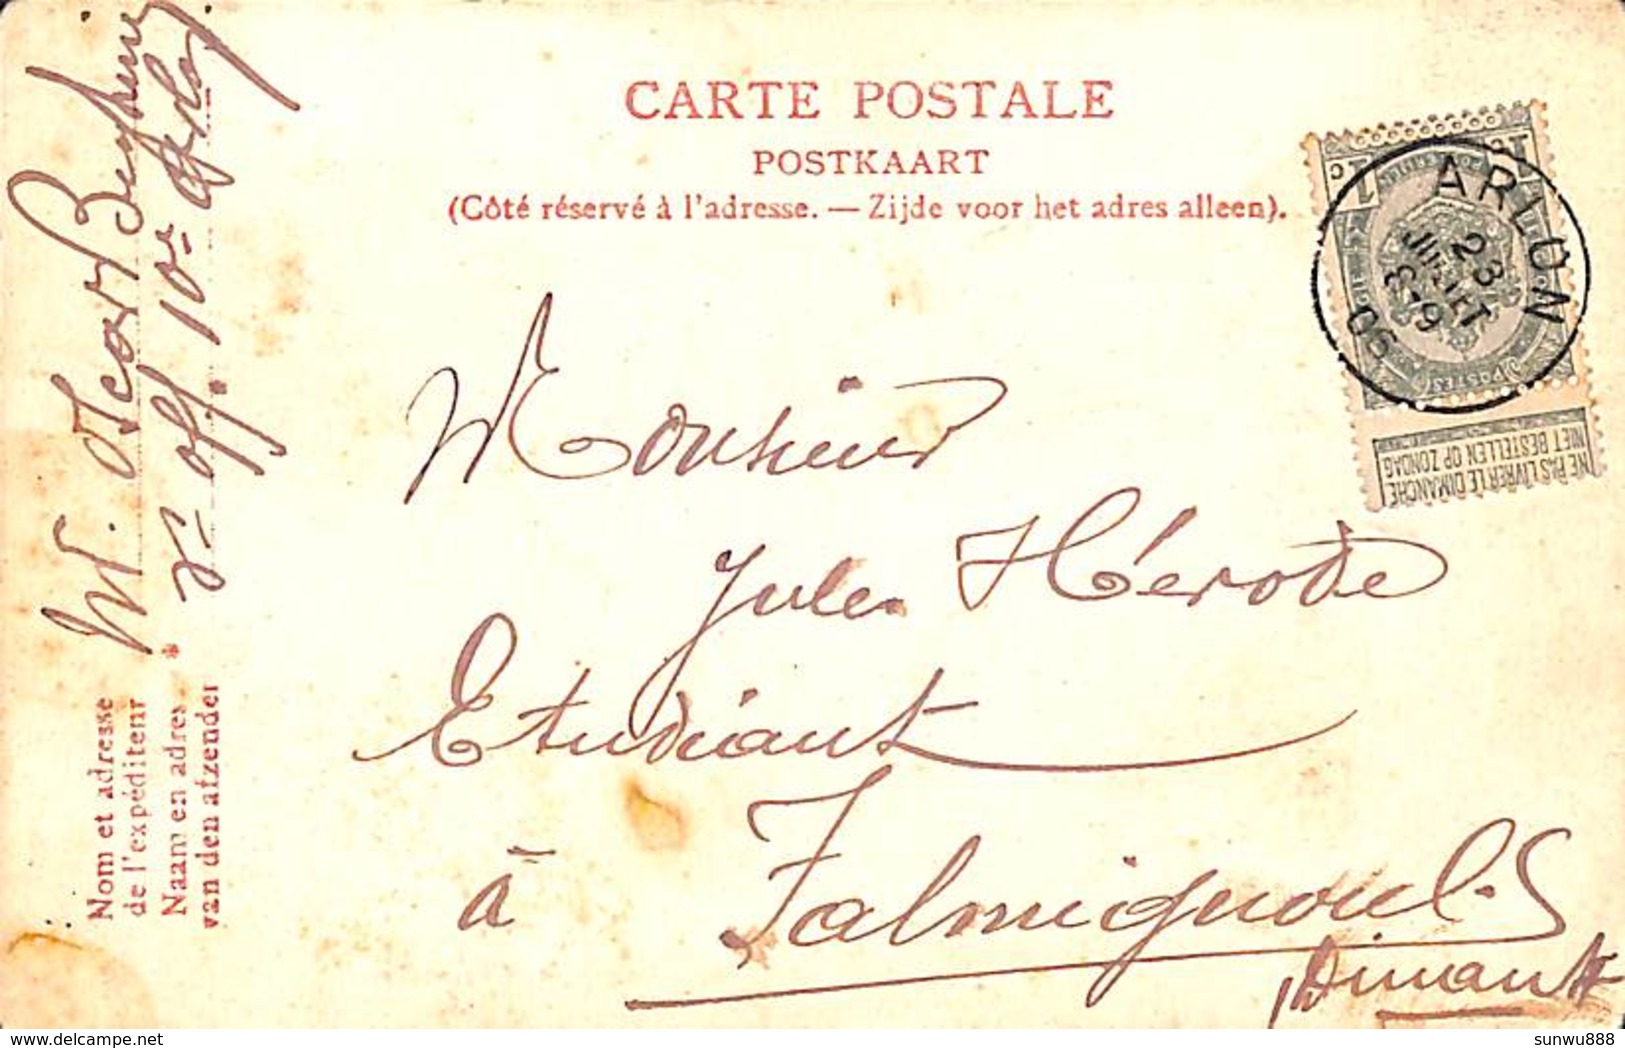 CARTE POSTALE
POSTKAART
(Côté réservé à l'adresse. — Zijde voor het adres alleen).
Nom et adresse
de l'expéditeur
Naam en adres
van den afzender
Oscar
off. 10e
Arlon
1c 1c
POSTES
ARLON
23
JUILLET
8-9
06
NE PAS LIVRER LE DIMANCHE
NIET BESTELLEN OP ZONDAG
Monsieur
Jules Hérode
Etudiant
à Falmignoul-S
Dinant
sunwu888